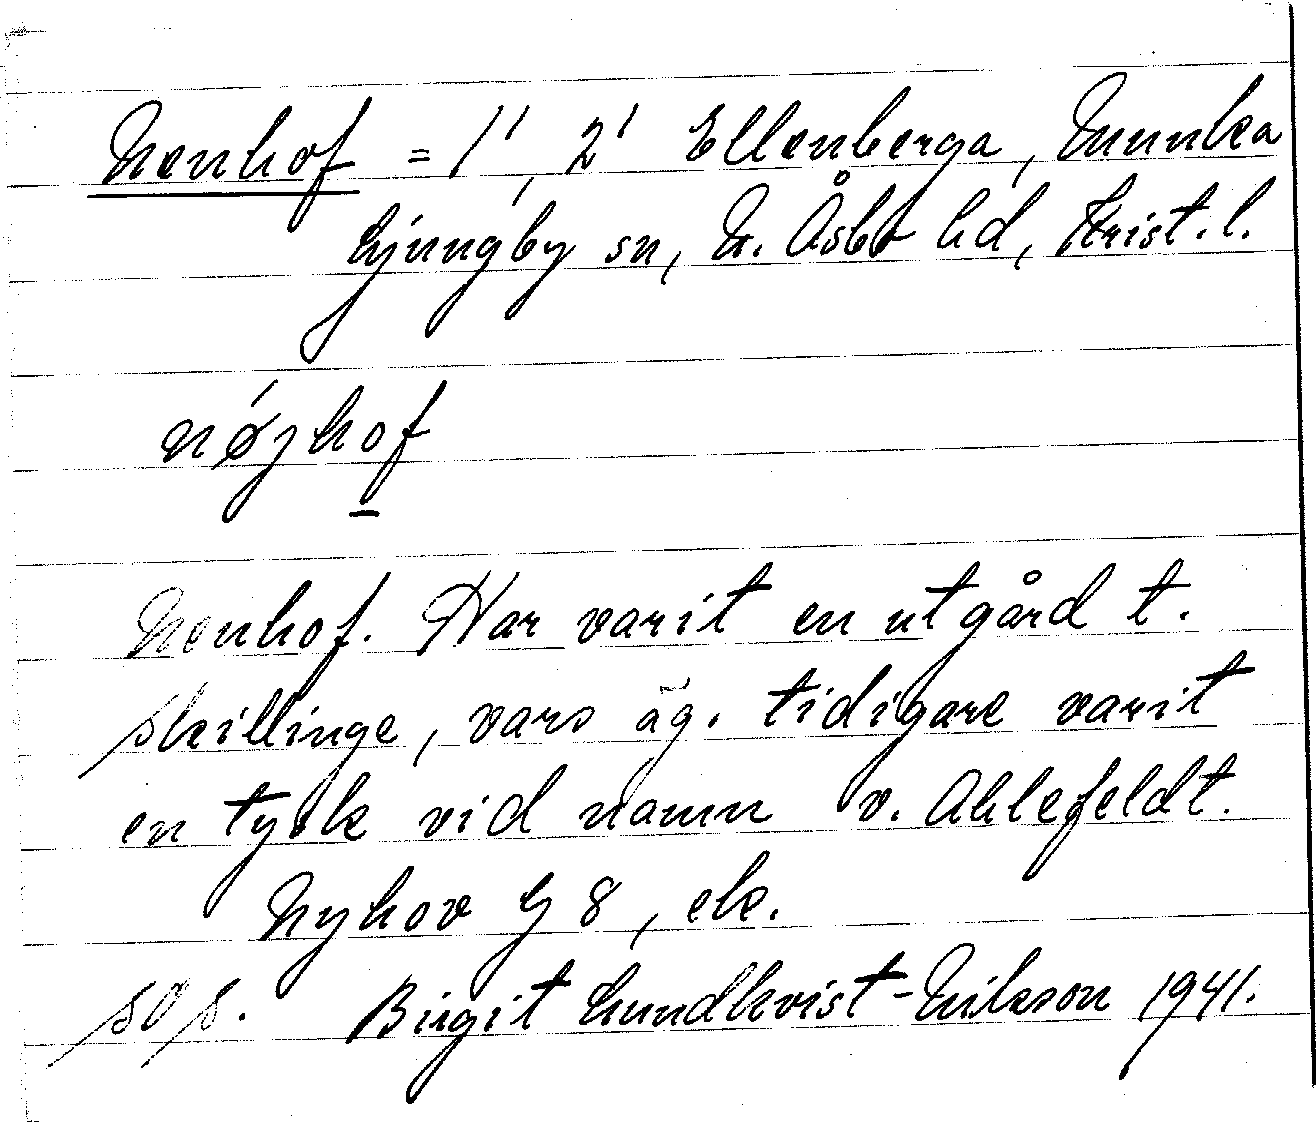 Nenhof = 1/1, 2/1 Ellenberga, Munka
Ljungby sn, N. Åsbo hd, Krist. l.
nǿjhof
Nenhof. Har varit en utgård t.
Skillinge, vars äg. tidigare varit
en tysk vid namn v. Ahlefeldt.
Nyhov G 8, ek.
Birgit Lundkvist-Nilsson 1941.